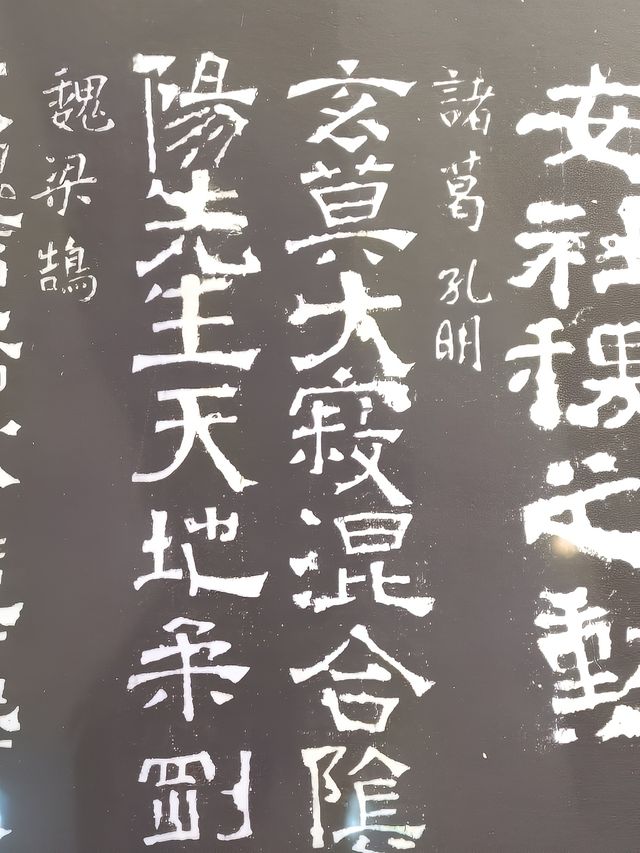 安社稷之勳
諸葛孔明
玄莫大寂混合陰
陽先生天地柔剛
魏梁鵠